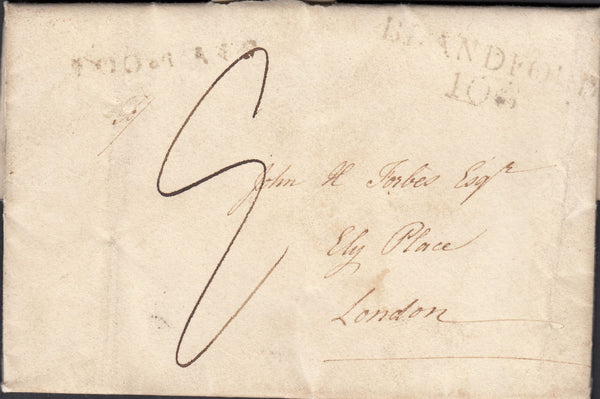 BLANDFORD
John H Forbes Esqr
Ely Place
London